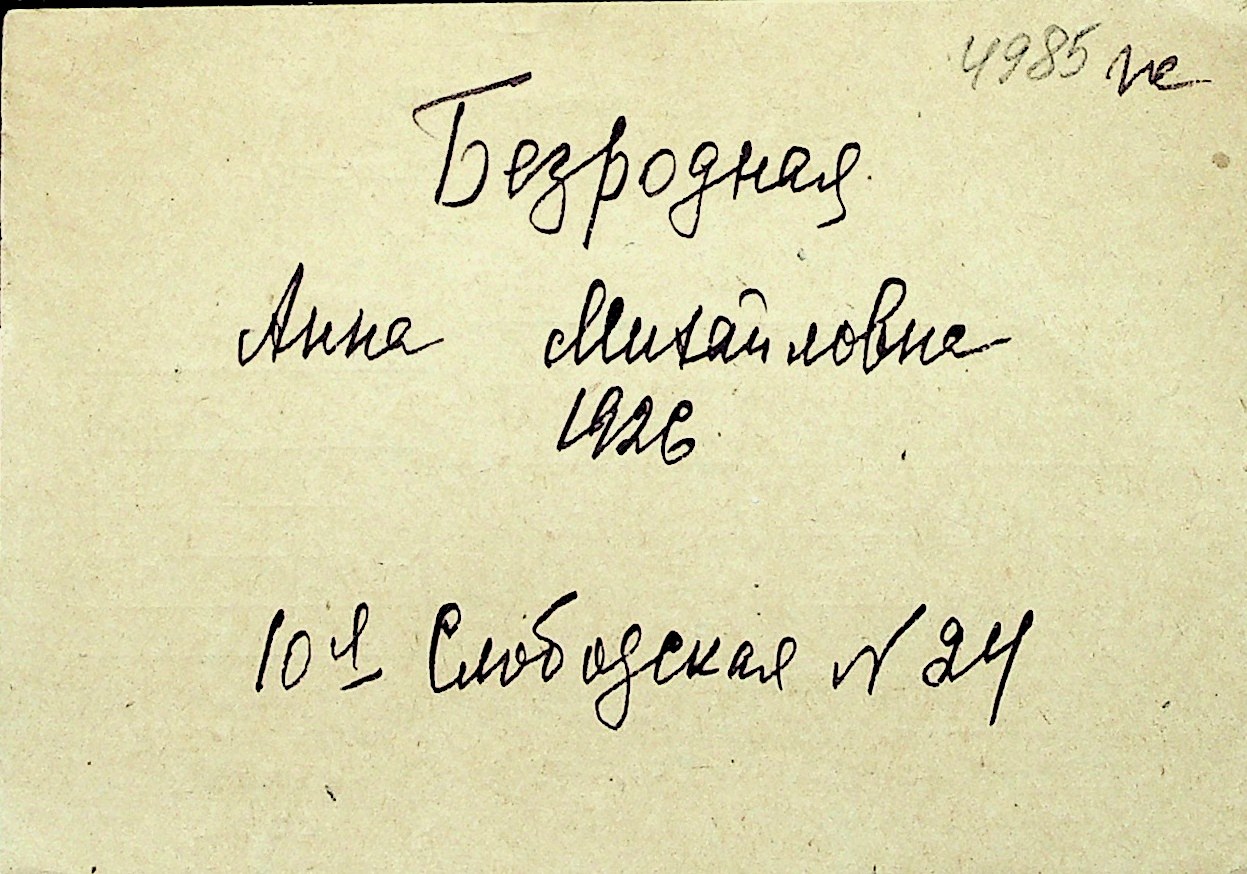 4985
Безродная
Анна Михайловна
1926
10я Слободская N 24